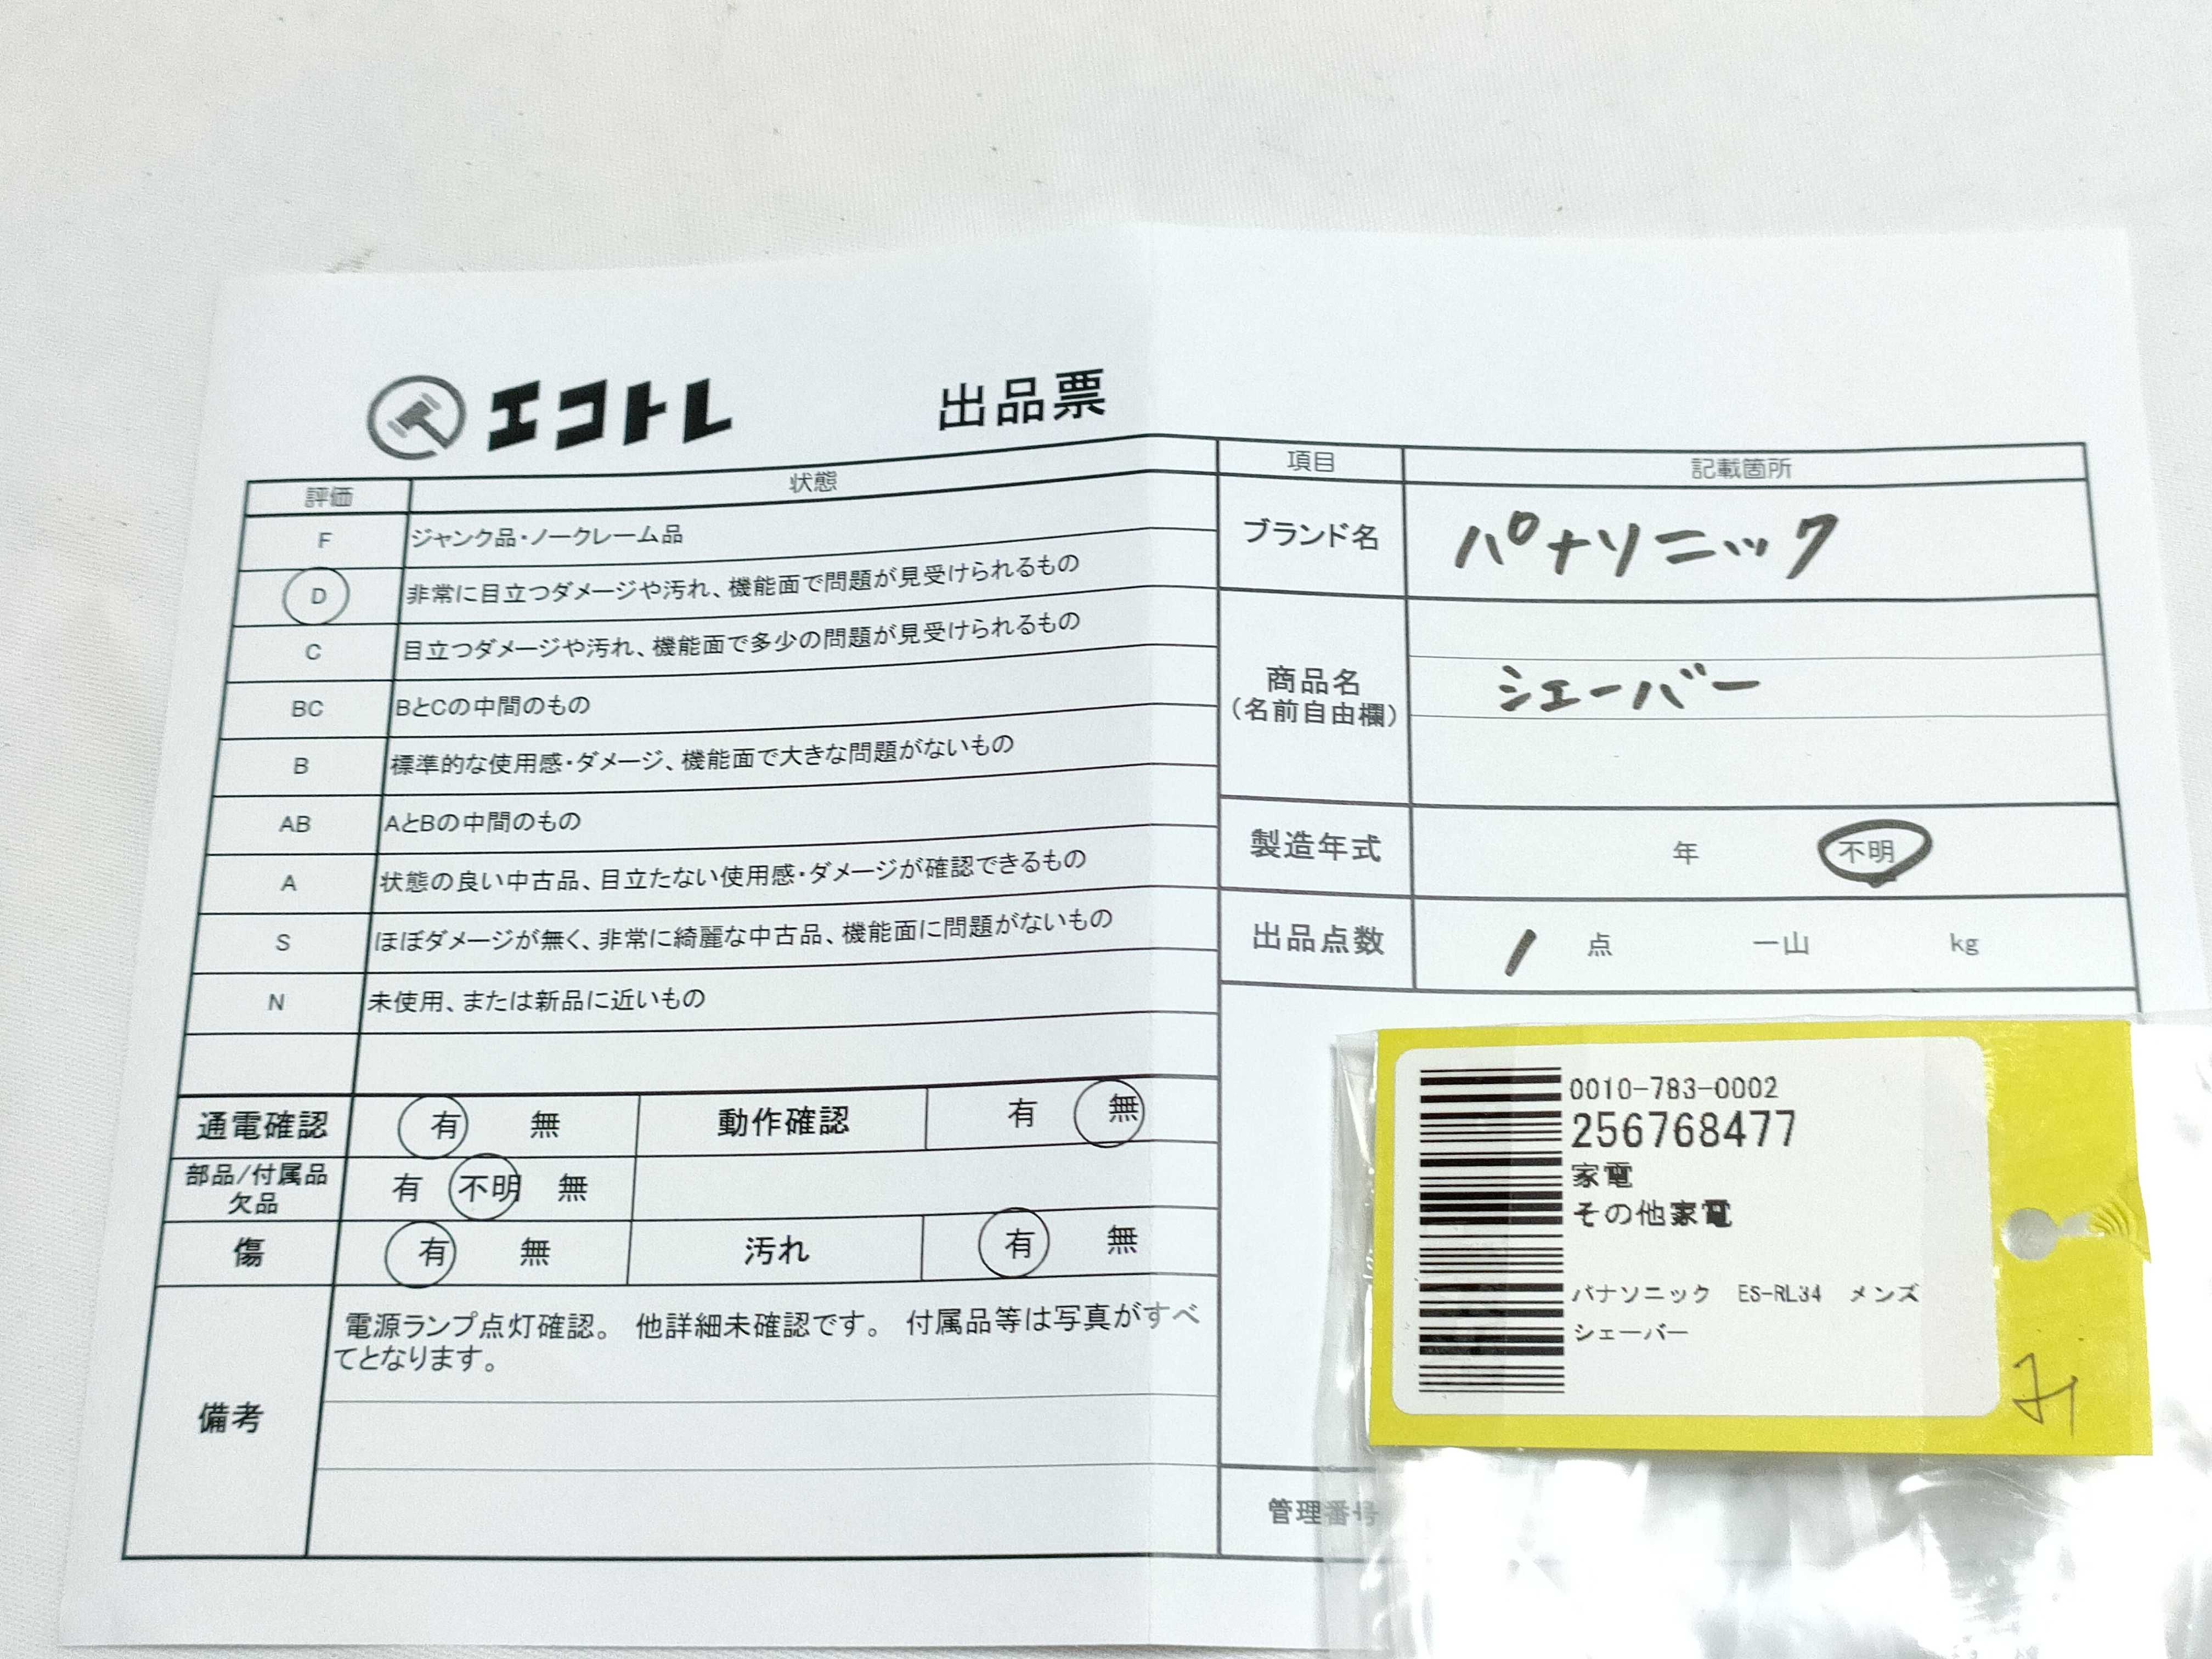 エコトレ 出品票
評価 状態
F ジャンク品・ノークレーム品
D 非常に目立つダメージや汚れ、機能面で問題が見受けられるもの
C 目立つダメージや汚れ、機能面で多少の問題が見受けられるもの
BC BとCの中間のもの
B 標準的な使用感・ダメージ、機能面で大きな問題がないもの
AB AとBの中間のもの
A 状態の良い中古品、目立たない使用感・ダメージが確認できるもの
S ほぼダメージが無く、非常に綺麗な中古品、機能面に問題がないもの
N 未使用、または新品に近いもの
通電確認 有 無 動作確認 有 無
部品/付属品
欠品 有 不明 無
傷 有 無 汚れ 有 無
備考
電源ランプ点灯確認。 他詳細未確認です。 付属品等は写真がすべ
てとなります。
項目 記載箇所
ブランド名 パナソニック
商品名
(名前自由欄)
シェーバー
製造年式 年 不明
出品点数 1 点 一山 kg
管理番号
0010-783-0002
256768477
家電
その他家電
パナソニック ES-RL34 メンズ
シェーバー